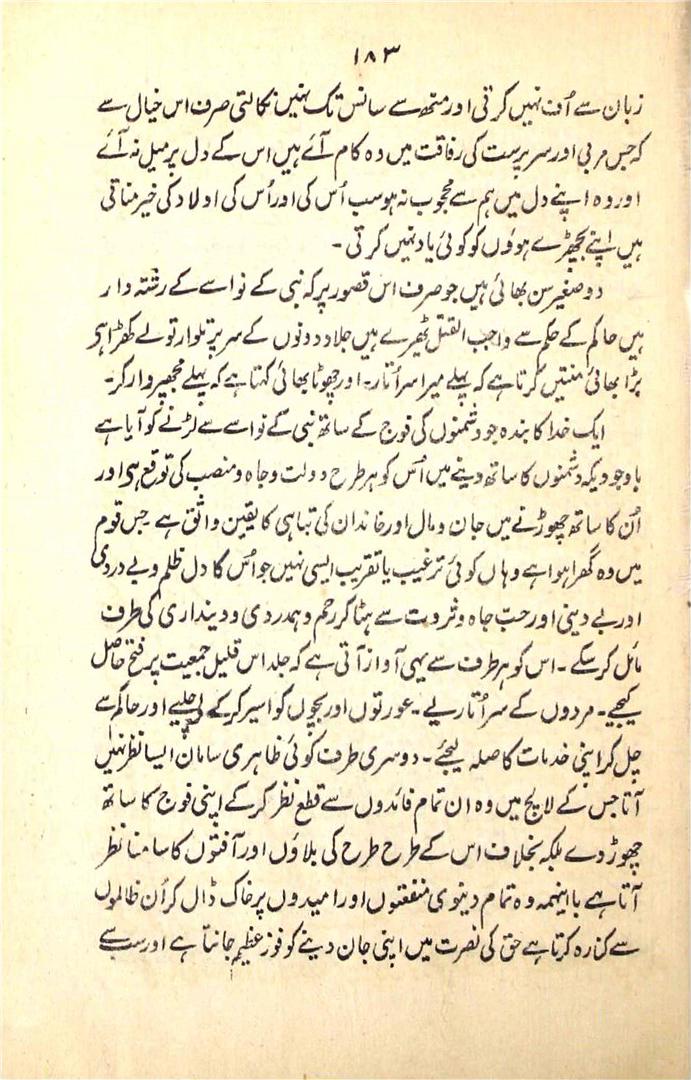 ۱۸۳
زبان سے اُف نہیں کرتی اور منھ سے سانس تک نہیں نکالتی صرف اس خیال سے
کہ جس مربی اور سرپرست کی رفاقت میں وہ کام آئے ہیں اس کے دل پر میل نہ آئے
اور وہ اپنے دل میں ہم سے محجوب نہ ہو سب اُس کی اور اُس کی اولاد کی خیر مناتی
ہیں اپنے بچھڑے ہوؤں کو کوئی یاد نہیں کرتی ۔
دو صغیر سن بھائی ہیں جو صرف اس قصور پر کہ نبی کے نواسے کے رشتہ دار
ہیں حاکم کے حکم سے واجب القتل ٹھیرے ہیں جلاد دونوں کے سر پر تلوار تولے کھڑا ہی
بڑا بھائی منتیں کرتا ہے کہ پہلے میرا سر اُتار ۔ اور چھوٹا بھائی کہتا ہے کہ پہلے مجھپر وار کر ۔
ایک خدا کا بندہ جو دشمنوں کی فوج کے ساتھ نبی کے نواسے سے لڑنے کو آیا ہے
باوجودیکہ دشمنوں کا ساتھ دینے میں اُس کو ہر طرح دولت و جاہ و منصب کی توقع ہی اور
اُن کا ساتھ چھوڑنے میں جان و مال اور خاندان کی تباہی کا یقین واثق ہے جس قوم
میں وہ گھرا ہوا ہے وہاں کوئی ترغیب یا تقریب ایسی نہیں جو اُس کا دل ظلم و بے دردی
اور بے دینی اور حبّ جاہ و ثروت سے ہٹا کر رحم و ہمدردی و دینداری کی طرف
مائل کر سکے ۔ اس کو ہر طرف سے یہی آواز آتی ہے کہ جلد اس قلیل جمعیت پر فتح حاصل
کیجیے ۔ مردوں کے سر اُتاریے ۔ عورتوں اور بچوں کو اسیر کر کے لے چلیے اور حاکم سے
چل کر اپنی خدمات کا صلہ لیجئے ۔ دوسری طرف کوئی ظاہری سامان ایسا نظر نہیں
آتا جس کے لالچ میں وہ ان تمام فائدوں سے قطع نظر کر کے اپنی فوج کا ساتھ
چھوڑ دے بلکہ بخلاف اس کے طرح طرح کی بلاؤں اور آفتوں کا سامنا نظر
آتا ہے با اینہمہ وہ تمام دینوی منفعتوں اور امیدوں پر خاک ڈال کر اُن ظالموں
سے کنارہ کرتا ہے حق کی نصرت میں اپنی جان دینے کو فوز عظیم جانتا ہے اور سب سے